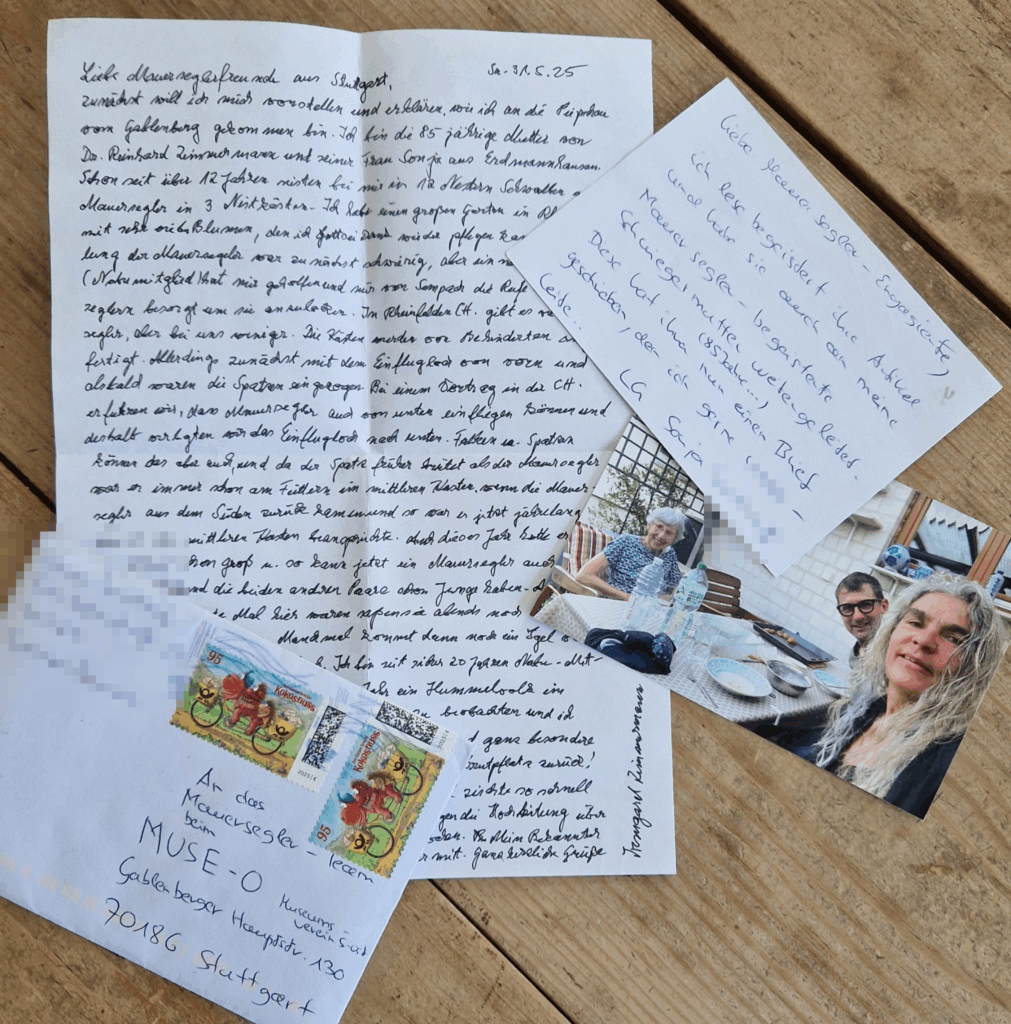 Sa. 31.5.25
Liebe Mauerseglerfreunde aus Stuttgart,
zunächst will ich mich vorstellen und erklären, wie ich an die
vom Gablenberg gekommen bin. Ich bin die 85 jährige Mutter von
Dr. Reinhard Zimmermann und seiner Frau Sonja aus Erdmannhausen.
Schon seit über 12 Jahren nisten bei mir in 12 Nestern Schwalben
Mauersegler in 3 Nistkästen. Ich habe einen großen Garten in
mit sehr vielen Blumen, den ich wieder pflegen
lung der Mauersegler war zunächst schwierig, aber ein
(Nabumitglied) hat mir geholfen und mir von Sempach die Rufe
seglern besorgt um sie anzulocken. In Rheinfelden CH. gibt es
segler, aber bei uns weniger. Die Kästen wurden von Behinderten
fertigt. Allerdings zunächst mit dem Einflugloch von vorn und
alsbald waren die Spatzen eingezogen. Bei einem Vortrag in der CH.
erfuhren wir, dass Mauersegler auch von unten einfliegen können und
deshalb verlegten wir das Einflugloch nach unten. u. Spatzen
können das aber auch, und da der Spatz früher brütet als der Mauersegler
war er immer schon am Füttern im mittleren Kasten, wenn die Mauer
segler aus dem Süden zurück kamen und so war er jetzt jahrelang
mittleren Kasten beanspruchte. Aber dieses Jahr hatte er
schon groß u. so kann jetzt ein Mauersegler auch
und die beiden anderen Paare schon Junge haben.
Mal hier waren saßen sie abends noch
Manchmal kommt dann noch ein Igel
Ich bin seit über 20 Jahren Nabu-Mit-
Jahr ein Hummelvolk im
zu beobachten und ich
ganz besondere
Brutplatz zurück!
so schnell
die Hochleitung über
Mein Bekannter
mit. Ganz herzliche Grüße
Irmgard Zimmermann
Liebe Mauersegler-Engagierte,
ich lese begeistert ihre Artikel
und habe sie auch an meine
Mauersegler-begeisterte
Schwiegermutter weitergeleitet
(85 Jahre...)
Diese hat ihnen nun einen Brief
geschrieben, den ich gerne
leite...
LG Sonja
95
Kokosnuss
2025 | €
95
Kokosnuss
2025 | €
An das
Mauersegler-Team
beim
MUSE-O Museums-
verein S-Ost
Gablenberger Hauptstr. 130
70186 Stuttgart